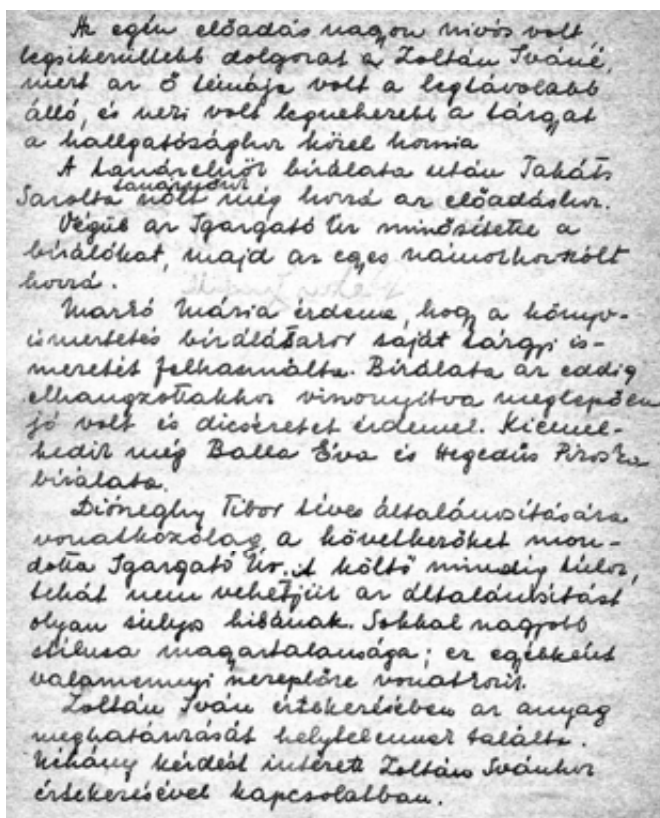 Az egén előadás nagyon nivós volt,
legsikerültebb dolgozat a Zoltán Iváné,
mert az ő témája volt a legtávolabb
álló, és neki volt legnehezebb a tárgyat
a hallgatósághoz közel hoznia
A tanárelnök bírálata után Takáts
Sarolta tanárnőnk szólt még hozzá az előadáshoz.
Végül az Igazgató Úr minősítette a
bírálókat, majd az egyes számokhoz szólt
hozzá.
Markó Mária érdeme, hogy a könyv-
ismertetés bírálásakor saját tárgyi is-
meretét felhasználta. Bírálata az eddig
elhangzottakhoz viszonyítva meglepően
jó volt és dicséretet érdemel. Kiemel-
kedik még Balla Éva és Hegedűs Piroska
bírálata.
Diószeghy Tibor téves általánosítására
vonatkozólag a következőket mon-
dotta Igazgató Úr. A költő mindig túloz,
tehát nem vehetjük az általánosítást
olyan súlyos hibának. Sokkal nagyobb
stílusa magartalansága; ez egyébként
valamennyi szereplőre vonatkozik.
Zoltán Iván értekezésében az anyag
meghatározását helytelennek találta.
Néhány kérdést intézett Zoltán Ivánhoz
értekezésével kapcsolatban.